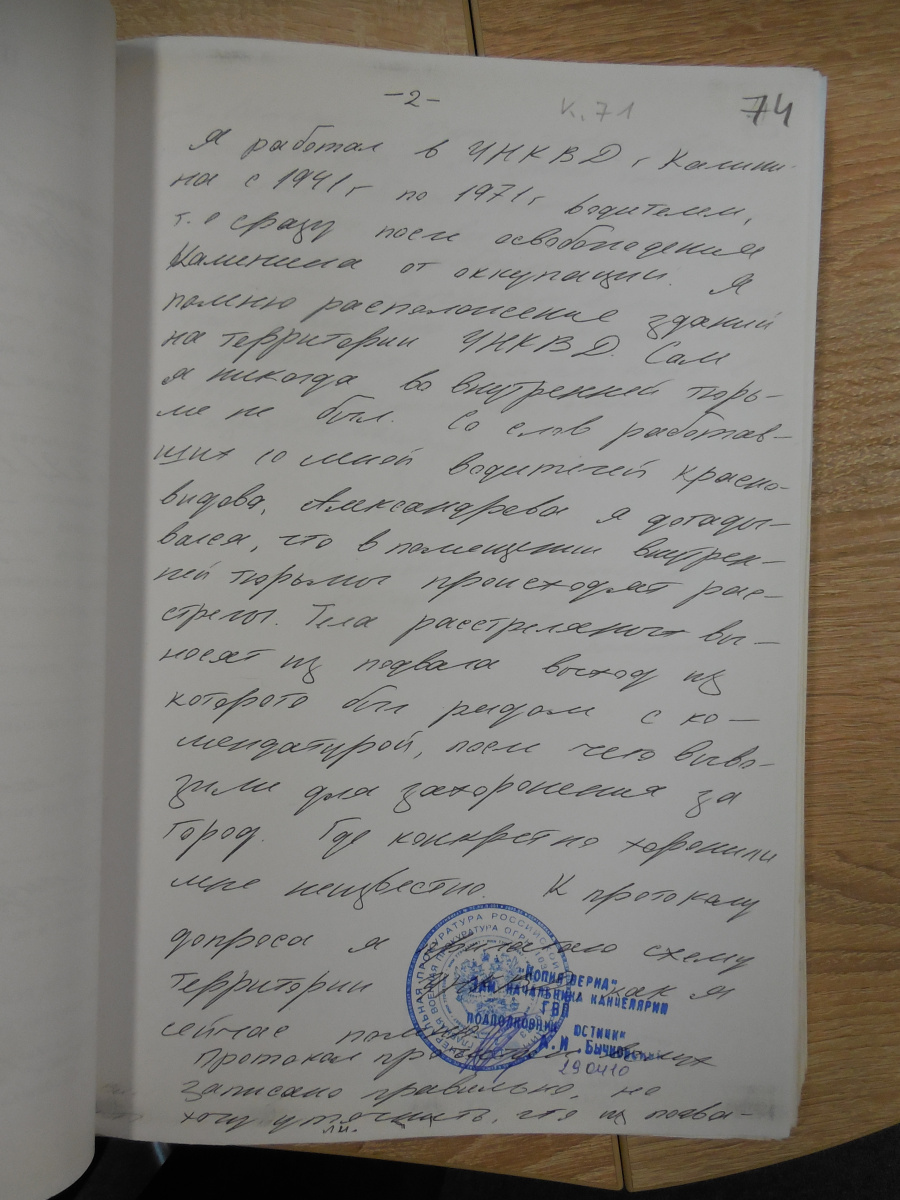 -2-
К. 71
74
Я работал в УНКВД г Калини-
на с 1941 г по 1971 г водителем,
т. е сразу после освобождения
Калинина от оккупации. Я
помню расположение зданий
на территории УНКВД. Сам
я никогда во внутренней тюрь-
ме не был. Со слов работав-
ших со мной водителей Красно-
видова, Александрова я догады-
вался, что в помещении внутрен-
ней тюрьмы происходят рас-
стрелы. Тела расстреляных вы-
носят из подвала выход из
которого был рядом с ко-
мендатурой, после чего выво-
зили для захоронения за
город. Где конкретно хоронили
мне неизвестно. К протоколу
допроса я прилагаю схему
территории УНКВД как я
сейчас помню.
Протокол
записано правильно, но
хочу уточнить, что из подва-
ГЕНЕРАЛЬНАЯ ПРОКУРАТУРА РОССИЙСКОЙ
ГЛАВНАЯ ВОЕННАЯ ПРОКУРАТУРА
"КОПИЯ ВЕРНА"
ЗАМ. НАЧАЛЬНИКА КАНЦЕЛЯРИИ
ГВП
ПОДПОЛКОВНИК ЮСТИЦИИ
А. И. Бычков
290410